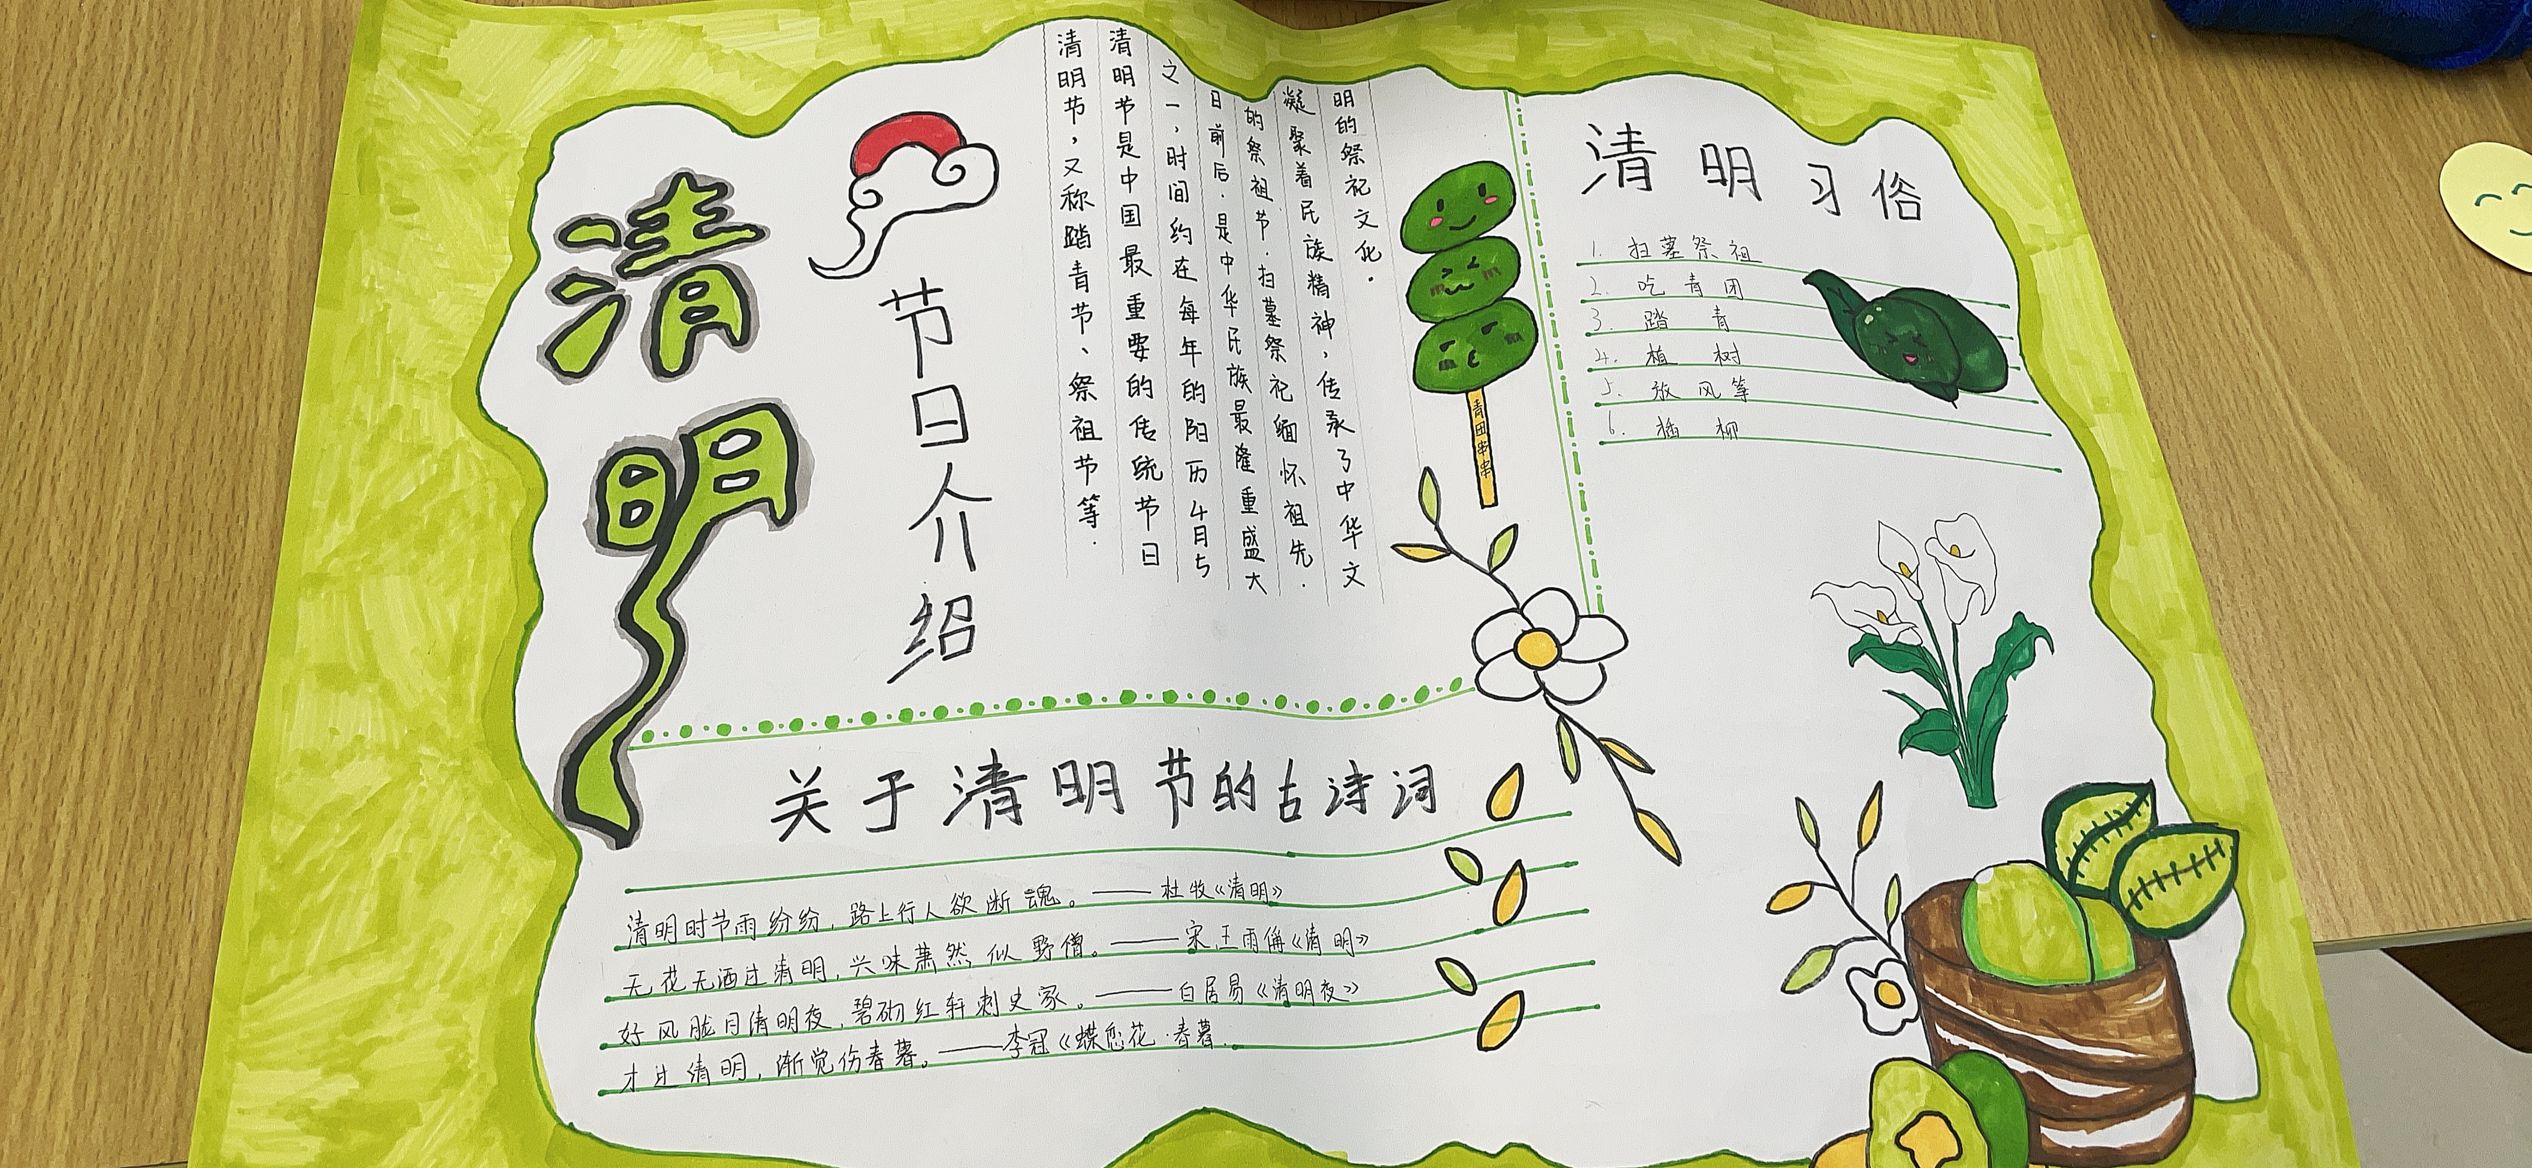 清明
节日介绍
清明节，又称踏青节、祭祖节等.
清明节是中国最重要的传统节日
之一，时间约在每年的阳历4月5
日前后.是中华民族最隆重盛大
的祭祖节.扫墓祭祀缅怀祖先.
凝聚着民族精神，传承了中华文
明的祭祀文化.
青团串串
清明习俗
1. 扫墓祭祖
2. 吃青团
3. 踏青
4. 植树
5. 放风筝
6. 插柳
关于清明节的古诗词
清明时节雨纷纷，路上行人欲断魂。——杜牧《清明》
无花无酒过清明，兴味萧然似野僧。——宋.王雨偁《清明》
好风胧月清明夜，碧砌红轩刺史家。——白居易《清明夜》
才过清明，渐觉伤春暮。——李冠《蝶恋花·春暮.